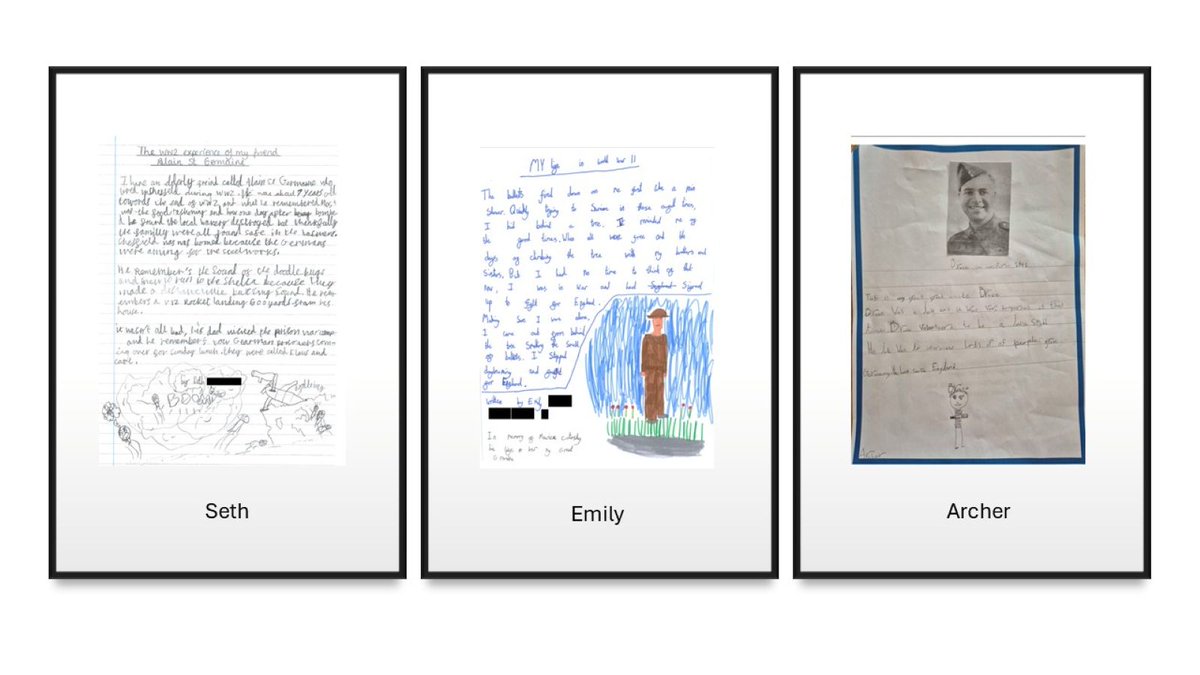 The WW2 experience of my friend
Alain St Germaine
I have an elderly freind called Alain St Germaine who
lived in Sheffield during WW2. He was about 7 years old
towards the end of WW2 and what he remembered Most
was the food rashoning and how one day after being bombe
d he found the local bakery destroyed but thankfully
the familly were all found safe in the basement.
Sheffield was was bombed because the Germans
were aiming for the steelworks.
He Remember's the Sound of the doodle bugs
and knew to run to the Shelter because they
made a distinctive putting sound. He rem-
embers a V2 Rocket landing 600 yards from his
house.
It wasn't all bad, his dad the prison war camp
and he remember's two Gearman prisoners com-
ing over for Sunday lunch. they were called Klaus and
carl.
by Seth
BOOM
Seth
MY life in world war 11
The bullets fired down on me feel like a rain
shower. Quietly trying to Survive in these rough times,
I hid behind a tree. It reminded me of
the good times. When all were free and the
days of climbing the tree with my brothers and
sisters. But I had no time to think of that
now, I was in war and had Signed
up to fight for England.
Making Sure I was alone,
I came out from behind
the tree Smelling the Smell
of bullets. I Stopped
daydreaming and fought
for England.
written by Emily
In memory of Maurice
he lept a hero my Great
Grandad
Emily
Bruce in uniform
This is my great great uncle Bruce
Bruce Was a
time Bruce Volunteered to be a
He Was to lots of of people from
Germany to England.
Archer
Archer